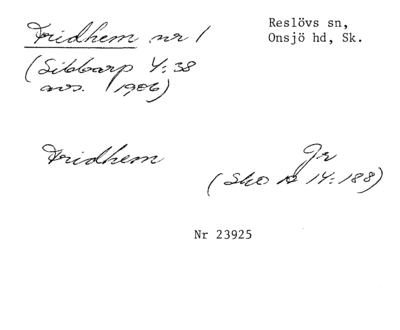 Fridhem nr 1
Reslövs sn,
Onsjö hd, Sk.
(Sibbarp 4:38
avs. 1906)
Fridhem
Jr
(Sko 14:188)
Nr 23925